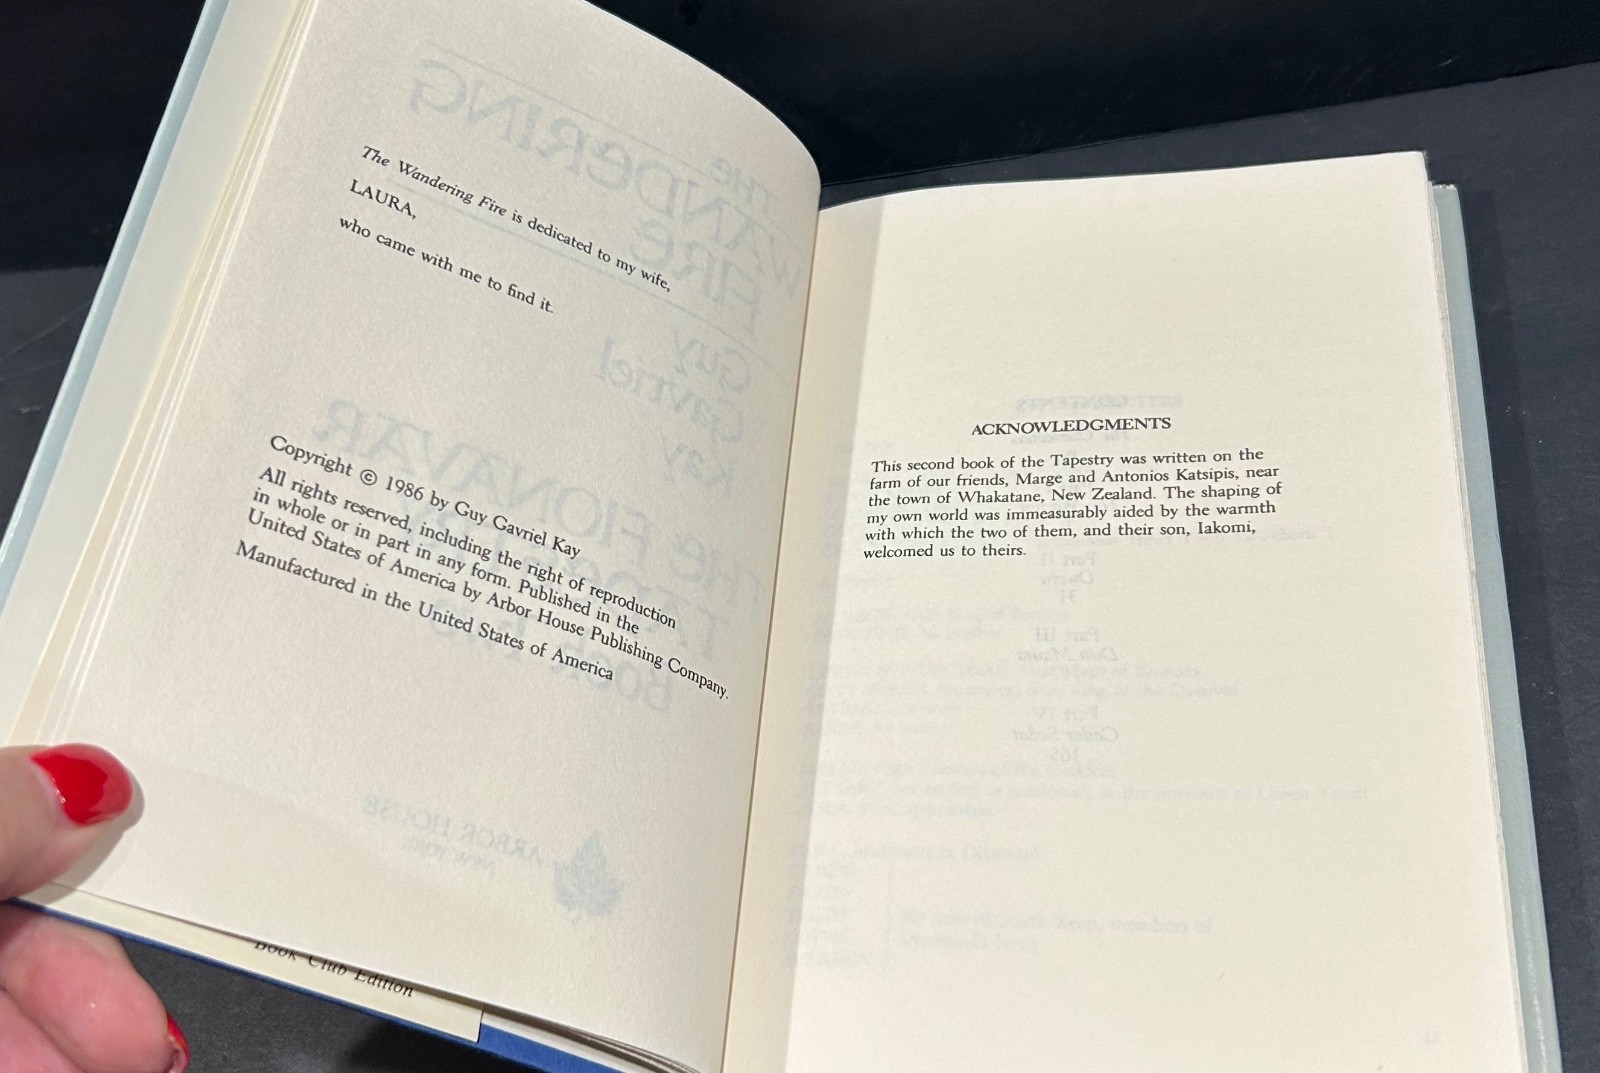 The Wandering Fire is dedicated to my wife,
LAURA,
who came with me to find it.
Copyright © 1986 by Guy Gavriel Kay
All rights reserved, including the right of reproduction
in whole or in part in any form. Published in the
United States of America by Arbor House Publishing Company.
Manufactured in the United States of America
Book Club Edition
ACKNOWLEDGMENTS
This second book of the Tapestry was written on the
farm of our friends, Marge and Antonios Katsipis, near
the town of Whakatane, New Zealand. The shaping of
my own world was immeasurably aided by the warmth
with which the two of them, and their son, Iakomi,
welcomed us to theirs.